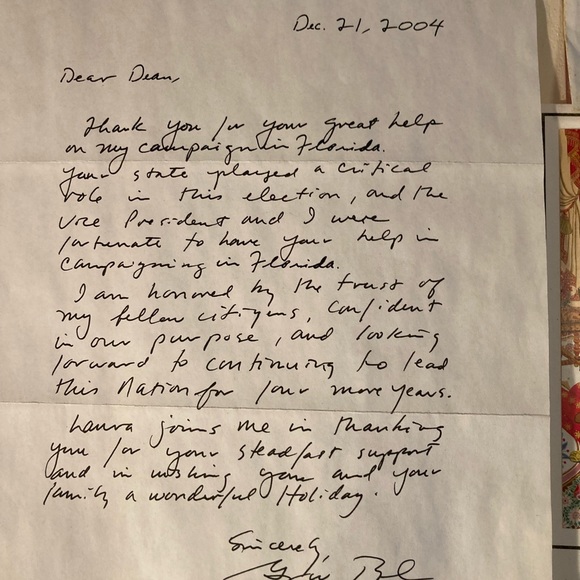 Dec. 21, 2004
Dear Dean,
Thank you for your great help
on my campaign in Florida.
Your state played a critical
role in this election, and the
Vice President and I were
fortunate to have your help in
campaigning in Florida.
I am honored by the trust of
my fellow citizens, confident
in our purpose, and looking
forward to continuing to lead
this Nation for four more years.
Laura joins me in thanking
you for your steadfast support
and in wishing you and your
family a wonderful Holiday.
Sincerely,